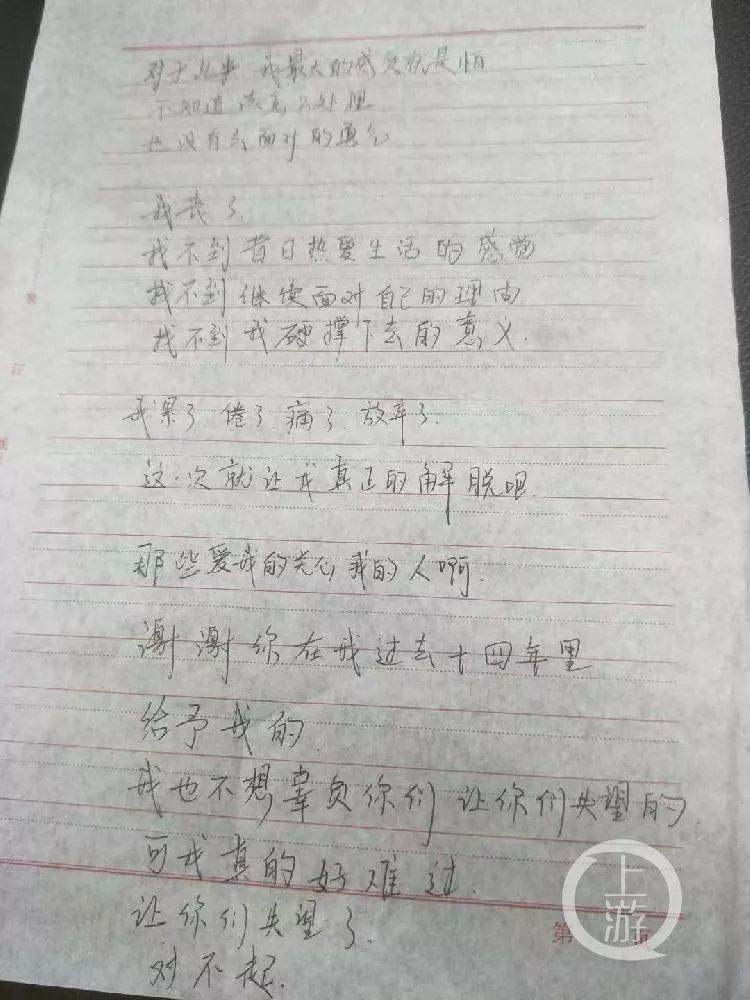 对于此事 我最大的感受就是怕
不知道该怎么处理
也没有去面对的勇气
我丧了.
找不到昔日热爱生活的感觉
找不到继续面对自己的理由.
找不到我硬撑下去的意义.
我累了.倦了.痛了.放弃了.
这一次就让我真正的解脱吧.
那些爱我的关心我的人啊.
谢谢你在我过去十四年里
给予我的.
我也不想辜负你们 让你们失望的.
可我真的好难过.
让你们失望了.
对不起.
第 页
上游
装
订
线